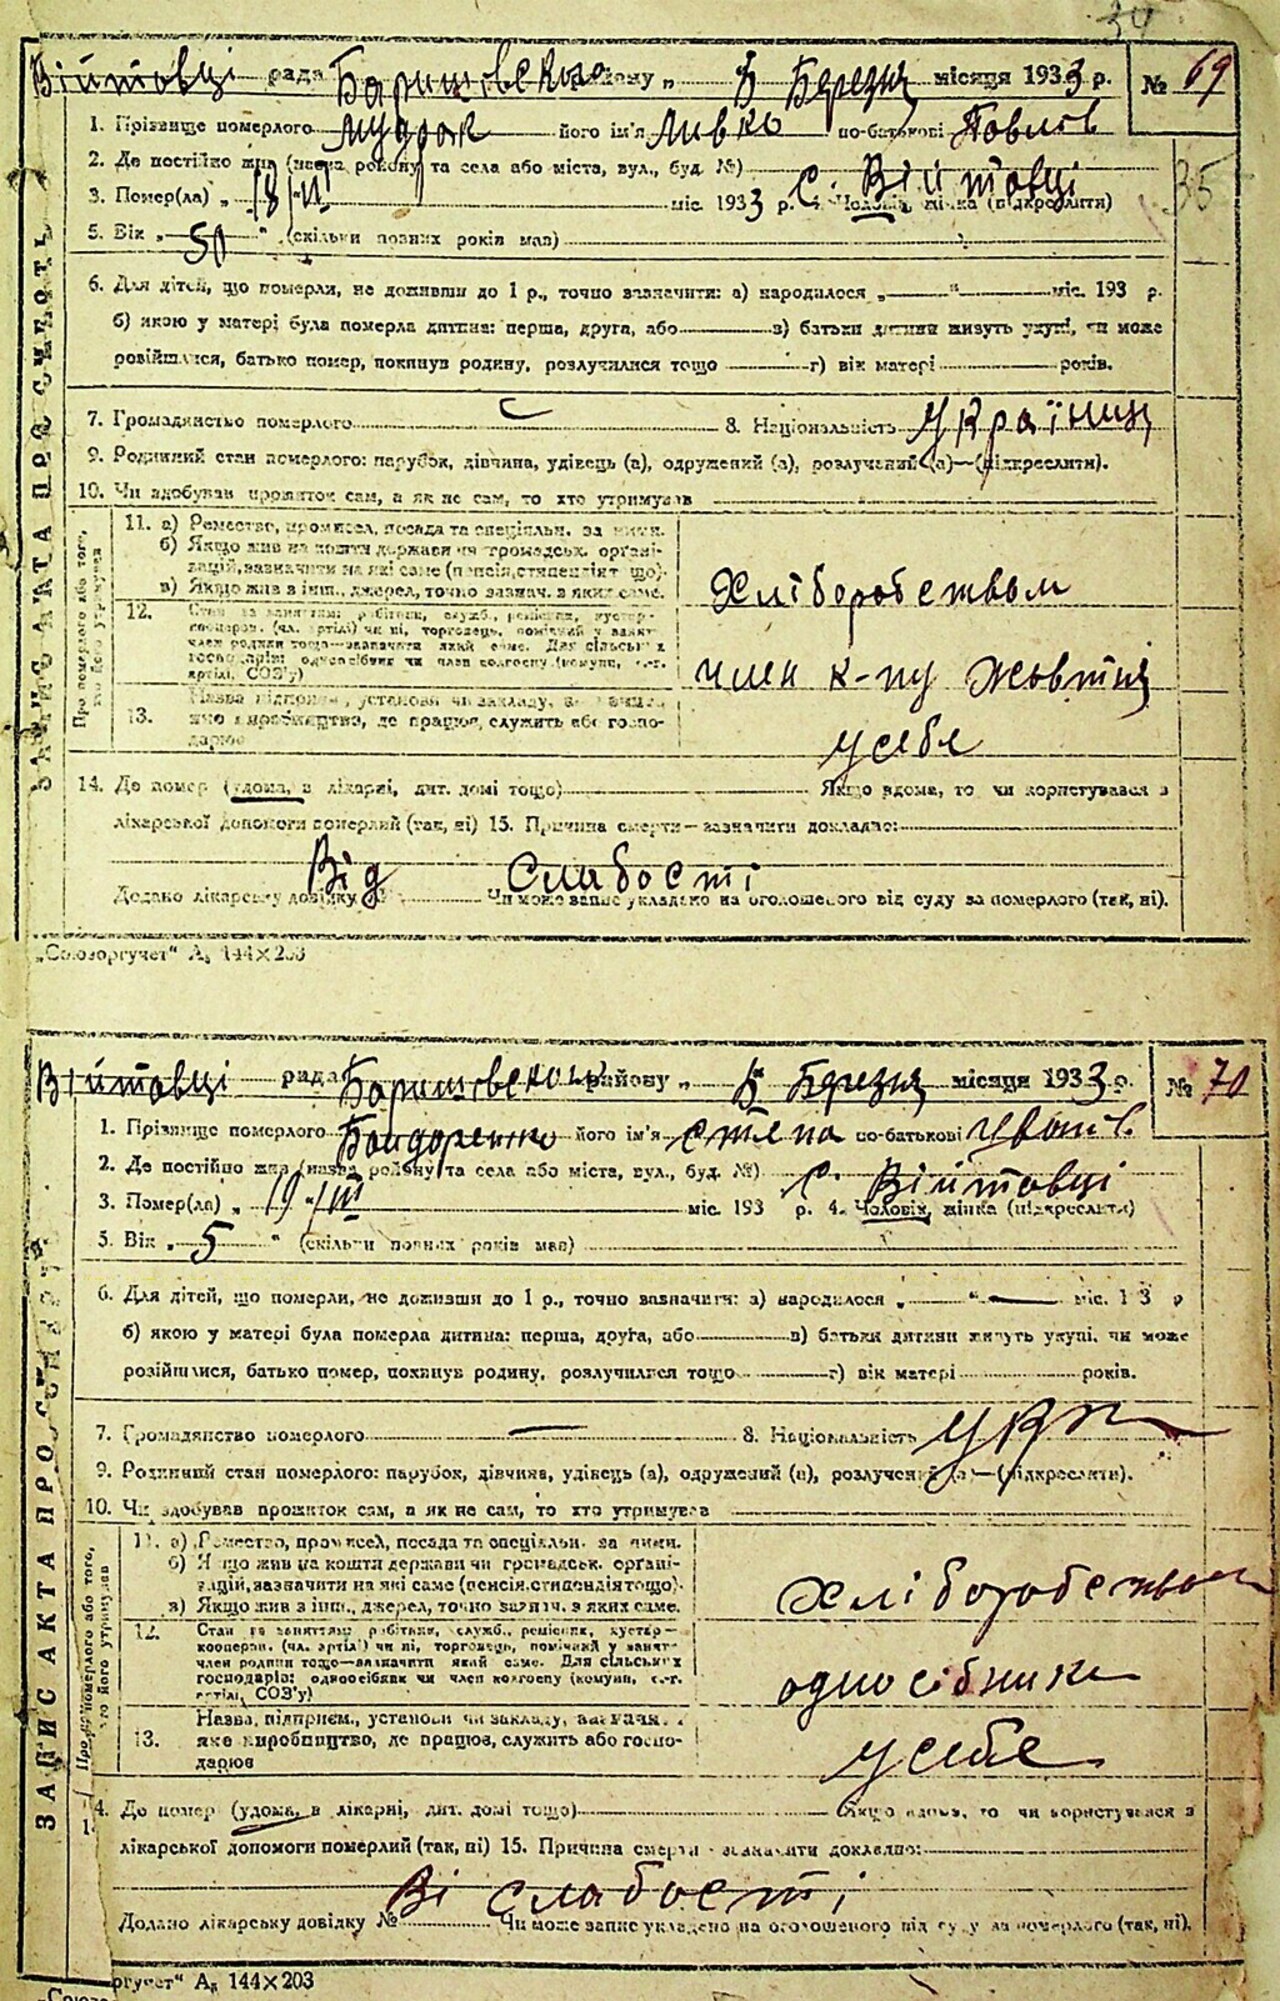 34
Війтовці рада Баришовського району „ Березня місяця 1933 р. № 69
1. Прізвище померлого його ім'я Ливко по-батькові Павлов
2. Де постійно жив (назва району та села або міста, вул., буд. №) с. Війтовці
3. Помер(ла) „ 18/III міс. 1933 р. 4. Чоловік, жінка (підкреслити)
35
5. Вік „ 50 “ (скільки повних років мав)
6. Для дітей, що померли, не доживши до 1 р., точно зазначити: а) народилося „ “ міс. 193 р.
б) якою у матері була померла дитина: перша, друга, або в) батьки дитини живуть укупі, чи може
розійшлися, батько помер, покинув родину, розлучилися тощо г) вік матері років.
7. Громадянство померлого 8. Національність Українц
9. Родинний стан померлого: парубок, дівчина, удівець (а), одружений (а), розлучений (а)—(підкреслити).
10. Чи здобував прожиток сам, а як не сам, то хто утримував
11. а) Ремество, промисел, посада та спеціяльн. за ними.
б) Якщо жив на кошти держави чи громадськ. органі-
зацій, зазначити на які саме (пенсія, стипендія тощо).
в) Якщо жив з інш., джерел, точно зазнач. з яких саме.
Хліборобством
12. Стан за заняттям: робітник, служб., ремісник, кустар-
кооперов. (чл. артілі) чи ні, торговець, помічний у занят.
член родини тощо—зазначити який саме. Для сільських
господарів: одноосібник чи член колгоспу (комуни, с.-г.
артілі, СОЗ'у)
член к-пу Жовтня
13. Назва підприєм., установи чи закладу, зазначит.
яке виробництво, де працює, служить або госпо-
дарює
у себе
14. Де помер (удома, в лікарні, дит. домі тощо) Якщо вдома, то чи користувався з
лікарської допомоги померлий (так, ні) 15. Причина смерти—зазначити докладно:
Від слабості
Додано лікарську довідку № Чи може запис укладено на оголошеного від суду за померлого (так, ні).
ЗАПИС АКТА ПРО СМЕРТЬ
Про померлого або того, хто його утримував
„Союзоргучет“ А₅ 144×203
Війтовці рада Баришовського району „ Березня місяця 1933 р. № 70
1. Прізвище померлого Бондоренко його ім'я Степа по-батькові
2. Де постійно жив (назва району та села або міста, вул., буд. №) с. Війтовці
3. Помер(ла) „ 19/III міс. 193 р. 4. Чоловік, жінка (підкреслити)
5. Вік „ 5 “ (скільки повних років мав)
6. Для дітей, що померли, не доживши до 1 р., точно зазначити: а) народилося „ “ міс. 193 р
б) якою у матері була померла дитина: перша, друга, або в) батьки дитини живуть укупі, чи може
розійшлися, батько помер, покинув родину, розлучилися тощо г) вік матері років.
7. Громадянство померлого 8. Національність Укр
9. Родинний стан померлого: парубок, дівчина, удівець (а), одружений (а), розлучений (а)—(підкреслити).
10. Чи здобував прожиток сам, а як не сам, то хто утримував
11. а) Ремество, промисел, посада та спеціяльн. за ними.
б) Якщо жив на кошти держави чи громадськ. органі-
зацій, зазначити на які саме (пенсія, стипендія тощо).
в) Якщо жив з інш., джерел, точно зазнач. з яких саме.
Хліборобством
12. Стан за заняттям: робітник, служб., ремісник, кустар—
кооперов. (чл. артілі) чи ні, торговець, помічний у занят-
член родини тощо—зазначити який саме. Для сільських
господарів: одноосібник чи член колгоспу (комуни, с.-г.
артілі, СОЗ'у)
односібник
13. Назва, підприєм., установи чи закладу, зазначит.
яке виробництво, де працює, служить або госпо-
дарює
у себе
14. Де помер (удома, в лікарні, дит. домі тощо) Якщо вдома, то чи користувався з
лікарської допомоги померлий (так, ні) 15. Причина смерти зазначити докладно:
Ві слабості
Додано лікарську довідку № Чи може запис укладено на оголошеного від суду за померлого (так, ні).
ЗАПИС АКТА ПРО СМЕРТЬ
Про померлого або того, хто його утримував
ргучет“ А₅ 144×203
„Союзо